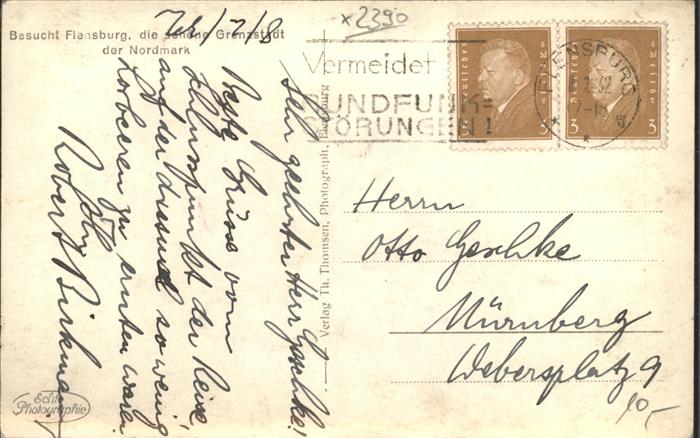 Besucht Flensburg, die schöne Grenzstadt
der Nordmark
x2390
Vermeidet
RUNDFUNK=
STÖRUNGEN!
FLENSBURG
Deutsches Reich
3
Deutsches Reich
3
Sehr geehrter Herr Geschke!
Beste Grüsse vom
der Reise,
auf der diesmal so wenig
Lorbeeren zu ernten waren.
Ihr
Robert
Verlag Th. Thomsen, Photograph, Flensburg
Herrn
Otto Geschke
Nürnberg
Webersplatz 9
10,-
Echte
Photographie